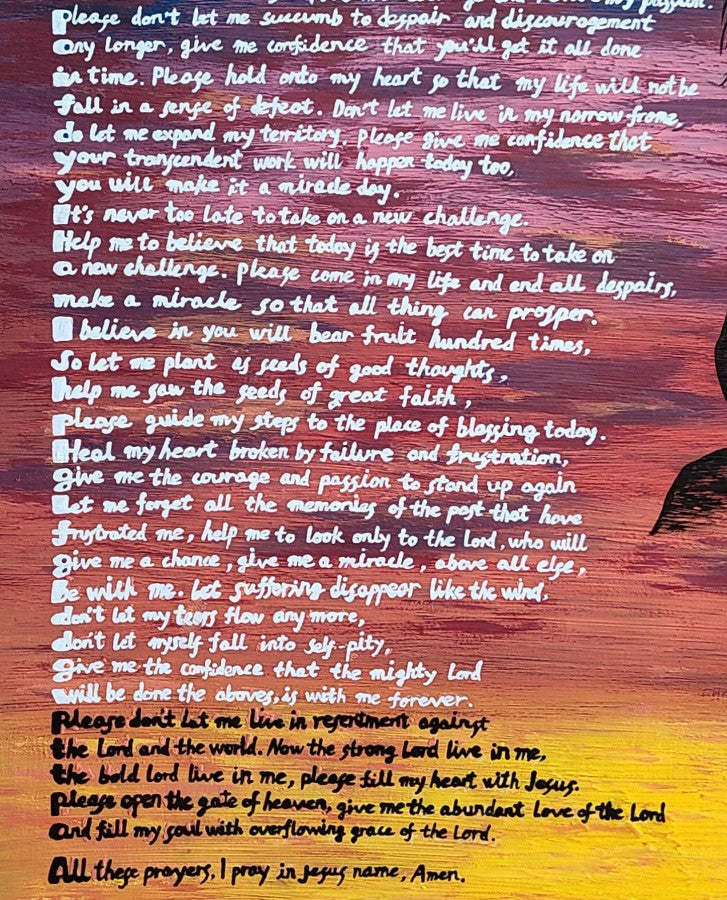 my passion.
Please don't let me succumb to despair and discouragement
any longer, give me confidence that you'll get it all done
in time. Please hold onto my heart so that my life will not be
fall in a sense of defeat. Don't let me live in my norrow frame,
do let me expand my territory. Please give me confidence that
your transcendent work will happen today too,
you will make it a miracle day.
It's never too late to take on a new challenge.
Help me to believe that today is the best time to take on
a new challenge. please come in my life and end all despairs,
make a miracle so that all thing can prosper.
I believe in you will bear fruit hundred times,
So let me plant as seeds of good thoughts,
help me saw the seeds of great faith,
please guide my steps to the place of blessing today.
Heal my heart broken by failure and frustration,
give me the courage and passion to stand up again
Let me forget all the memories of the past that have
frustrated me, help me to look only to the Lord, who will
give me a chance, give me a miracle, above all else,
be with me. Let suffering disappear like the wind,
don't let my tears flow any more,
don't let myself fall into self-pity,
give me the confidence that the mighty Lord
will be done the aboves, is with me forever.
Please don't let me live in resentment against
the Lord and the world. Now the strong Lord live in me,
the bold lord live in me, please fill my heart with Jesus.
please open the gate of heaven, give me the abundant love of the Lord
and fill my soul with overflowing grace of the Lord.
All these prayers, I pray in Jesus name, Amen.